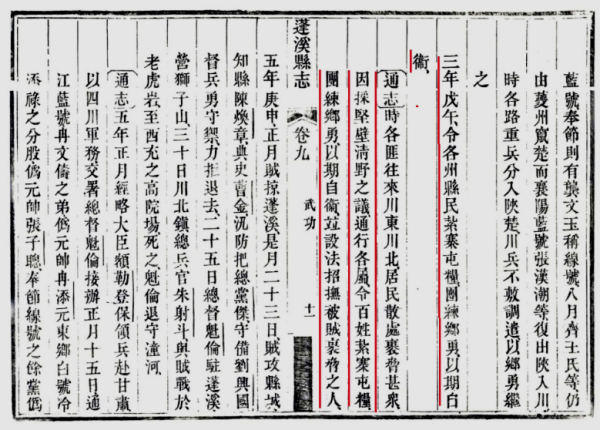 藍號奉節則有龔文玉稱線號八月齊王氏等仍
由夔州竄楚而襄陽藍號張漢潮等復由陝入川
時各路重兵分入陝楚川兵不敷調遣以鄉勇繼
之
三年戊午令各州縣民紥寨屯糧團練鄉勇以期自
衞
通志時各匪往來川東川北居民散處裹脅甚衆
因採堅壁清野之議通行各屬令百姓紥寨屯糧
團練鄉勇以期自衞並設法招撫被賊裹脅之人
蓬溪縣志
卷九
武功
十一
五年庚申正月賊掠蓬溪是月二十三日賊攻縣城
知縣陳煥章典史曹金汎防把總黨傑守備劉興國
督兵勇守禦力拒退去二十五日總督魁倫駐蓬溪
營獅子山三十日川北鎮總兵官朱射斗與賊戰於
老虎岩至西充之高院場死之魁倫退守潼河
通志五年正月經略大臣額勒登保領兵赴甘肅
以四川軍務交署總督魁倫接辦正月十五日通
江藍號冉文儔之弟僞元帥冉添元東鄉白號冷
添祿之分股僞元帥張子聰奉節線號之餘黨僞